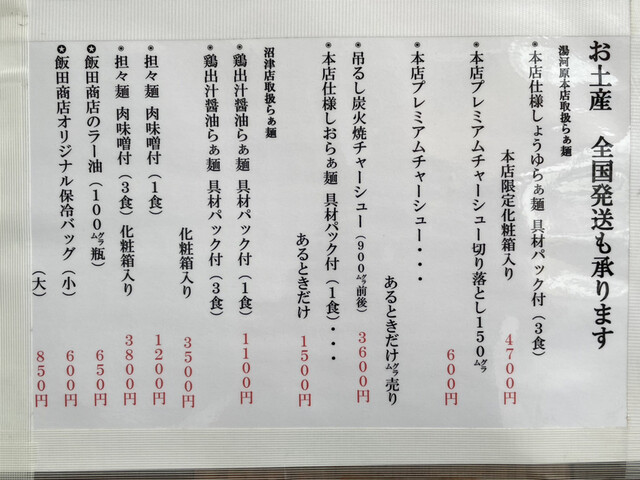 お土産　全国発送も承ります
湯河原本店取扱らぁ麺
・本店仕様しょうゆらぁ麺 具材パック付（3食）
本店限定化粧箱入り
4700円
・本店プレミアムチャーシュー切り落とし150グラム
600円
・本店プレミアムチャーシュー・・・
あるときだけグラム売り
・吊るし炭火焼チャーシュー（900グラム前後）
3600円
・本店仕様しおらぁ麺 具材パック付（1食）・・・
あるときだけ
1500円
沼津店取扱らぁ麺
・鶏出汁醤油らぁ麺 具材パック付（1食）
1100円
・鶏出汁醤油らぁ麺 具材パック付（3食）
化粧箱入り
3500円
・担々麺 肉味噌付（1食）
1200円
・担々麺 肉味噌付（3食）化粧箱入り
3800円
✪飯田商店のラー油（100グラム瓶）
650円
✪飯田商店オリジナル保冷バッグ（小）
600円
（大）
850円